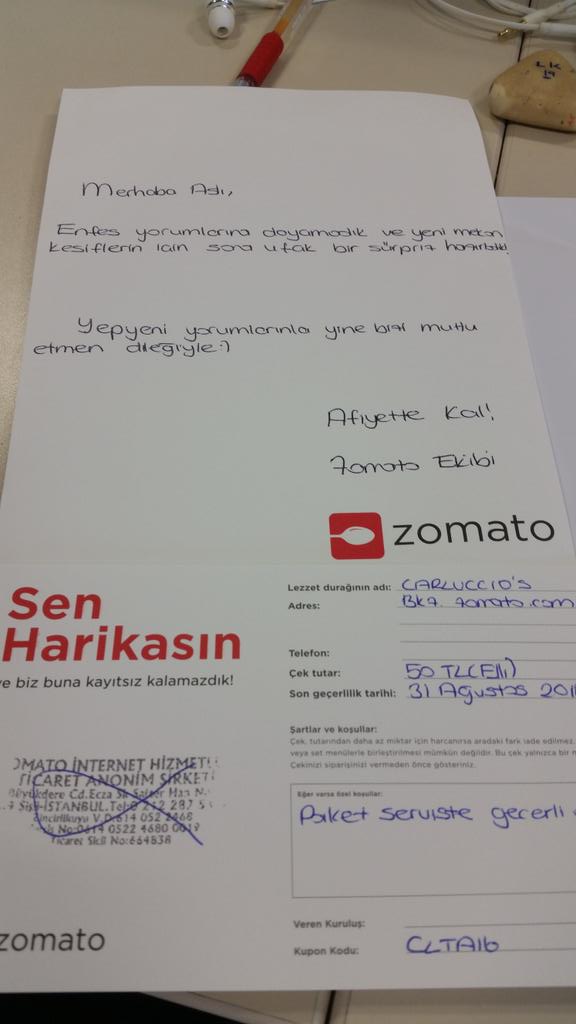 LK
19
Merhaba Aslı,
Enfes yorumlarına doyamadık ve yeni mekan
keşiflerin için sana ufak bir sürpriz hazırladık!
Yepyeni yorumlarınla yine bizi mutlu
etmen dileğiyle :)
Afiyette Kal!
Zomato Ekibi
zomato
Sen
Harikasın
ve biz buna kayıtsız kalamazdık!
Lezzet durağının adı: CARLUCCIO'S
Adres: Bkz. zomato.com
Telefon:
Çek tutar: 50 TL(Elli)
Son geçerlilik tarihi: 31 Ağustos 201
Şartlar ve koşullar:
Çek, tutarından daha az miktar için harcanırsa aradaki fark iade edilmez.
veya set menülerle birleştirilmesi mümkün değildir. Bu çek yalnızca bir
Çekinizi siparişinizi vermeden önce gösteriniz.
Eğer varsa özel koşullar:
Paket serviste geçerli
Veren Kuruluş:
Kupon Kodu: CLTA16
OMATO İNTERNET HİZMETL
TİCARET ANONİM ŞİRKETİ
Büyükdere Cd. Ecza Sk. Han N
Şişli-İSTANBUL Tel: 0 212 287 5
Zincirlikuyu V.D: 614 052 2468
No: 0614 0522 4680 0019
Ticaret Sicil No: 664838
zomato